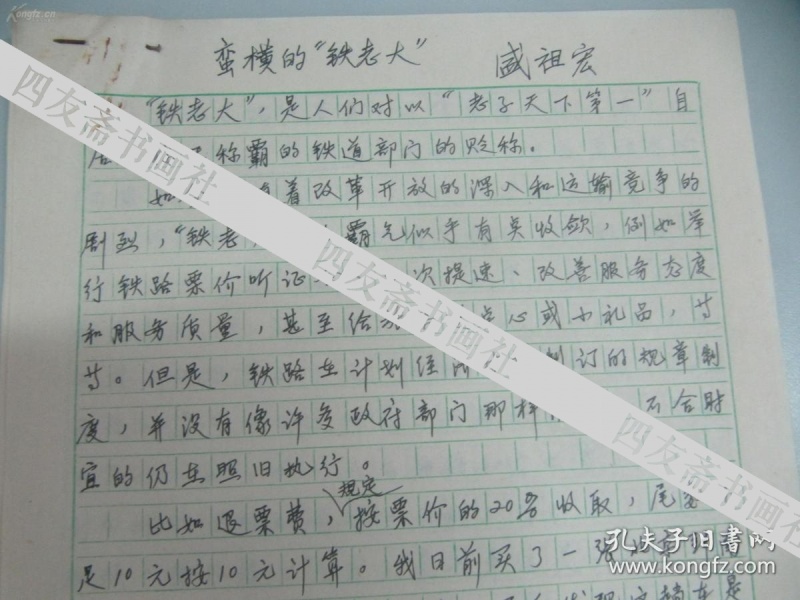 蛮横的“铁老大” 盛祖宏
“铁老大”，是人们对以“老子天下第一”自
居 称霸的铁道部门的贬称。
如 着改革开放的深入和运输竞争的
剧烈，“铁老 霸气似乎有点收敛，例如举
行铁路票价听证 次提速、改善服务态度
和服务质量，甚至给 点心或小礼品，等
等。但是，铁路在计划经 制订的规章制
度，并没有像许多政府部门那样 不合时
宜的仍在照旧执行。
规定
比如退票费，按票价的20%收取，尾
是10元按10元计算。我日前买了一张
四友斋书画社
四友斋书画社
四友斋书画社
孔夫子旧书网
www.kongfz.com
Kongfz.com